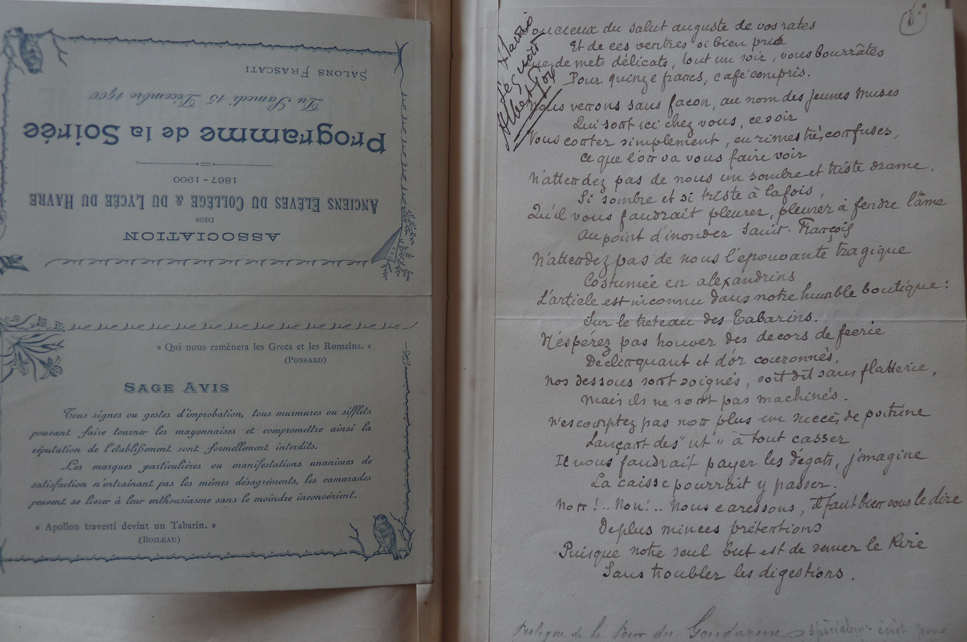 ASSOCIATION
DES
ANCIENS ÉLÈVES DU COLLÈGE & DU LYCÉE DU HAVRE
1867-1900
Programme de la Soirée
Du Samedi 15 Décembre 1900
SALONS FRASCATI
« Qui nous ramènera les Grecs et les Romains. »
(PONSARD)
SAGE AVIS
Tous signes ou gestes d'improbation, tous murmures ou sifflets
pouvant faire tourner les mayonnaises et compromettre ainsi la
réputation de l'établissement sont formellement interdits.
Les marques particulières ou manifestations unanimes de
satisfaction n'entrainant pas les mêmes désagréments, les camarades
peuvent se livrer à leur enthousiasme sans le moindre inconvénient.
« Apollon travesti devint un Tabarin. »
(BOILEAU)
Albert
du salut auguste de vos rates
Et de ces ventres si bien pris
de mets délicats, tout un soir, vous bourrâtes
Pour quinze francs, café compris.
Nous venons sans façon, au nom des jeunes muses
Qui sont ici chez vous, ce soir
Vous conter simplement, en rimes très confuses,
Ce que l'on va vous faire voir
N'attendez pas de nous un sombre et triste drame.
Si sombre et si triste à la fois,
Qu'il vous faudrait pleurer, pleurer à fendre l'âme
Au point d'inonder Saint-François
N'attendez pas de nous l'épouvante tragique
Costumée en alexandrins
L'article est inconnu dans notre humble boutique:
Sur le treteau des Tabarins.
N'éspérez pas trouver des decors de feerie
De clinquant et d'or couronnés.
Nos dessous sont soignés, soit dit sans flatterie,
Mais ils ne sont pas machinés.
N'escomptez pas non plus un succès de poitrine
Lançant des "ut" à tout casser
Il vous faudrait payer les dégats, j'imagine
La caisse pourrait y passer.
Non!.. Non!.. Nous caressons, il faut bien vous le dire
De plus minces prétentions
Puisque notre seul but est de semer le Rire
Sans troubler les digestions.
Prologue de la Peur du Gendarme spécialement écrit pour